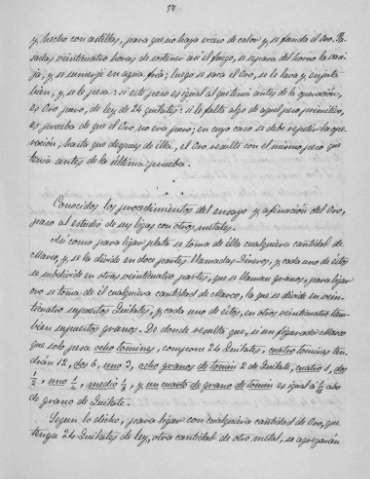 y, hecho con astillas, para que no haya exceso de calor y se funda el Oro. Pa-
sadas veinticuatro horas de sostener así el fuego, se separa del horno la vasi-
ja, y se sumerje en agua fría; luego se saca el Oro, se le lava y enjuta
bien, y se le pesa: si este peso es igual al que tenía antes de la operación,
es Oro puro, de ley de 24 quilates: si le falta algo de aquel peso primitivo,
es prueba de que el Oro no era puro; en cuyo caso se debe repetir la ope-
ración, hasta que después de ella, el Oro resulte con el mismo peso que
tenía antes de la última prueba.
Conocidos los procedimientos del ensaye y afinación del Oro,
paso al estudio de sus ligas con otros metales.
Así como para ligar plata se toma de ella cualquiera cantidad de
Marcos, y se la divide en doce partes, llamadas Dineros, y cada uno de éstos
se subdivide en otras veinticuatro partes, que se llaman granos, para ligar
oro se toma de él cualquiera cantidad de Marcos, la que se divide en vein-
ticuatro supuestos Quilates, y cada uno de éstos, en otros veinticuatro tam-
bién supuestos granos. De donde resulta que, si un figurado Marco
que solo pesa ocho tomines, compone 24 Quilates, cuatro tomines ten-
drán 12, dos 6, uno 3, ocho granos de tomin 2 de Quilate, cuatro 1, dos
½, uno ¼, medio ⅛, y un cuarto de grano de tomin es igual a
de grano de Quilate.
Según lo dicho, para ligar con cualquiera cantidad de Oro, que
tenga 24 Quilates de ley, otra cantidad de otro metal, se agregarán